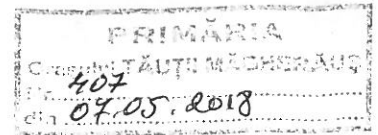 PRIMĂRIA
TĂUȚII MĂGHERĂUȘ
Nr. 407
din 07.05.2018